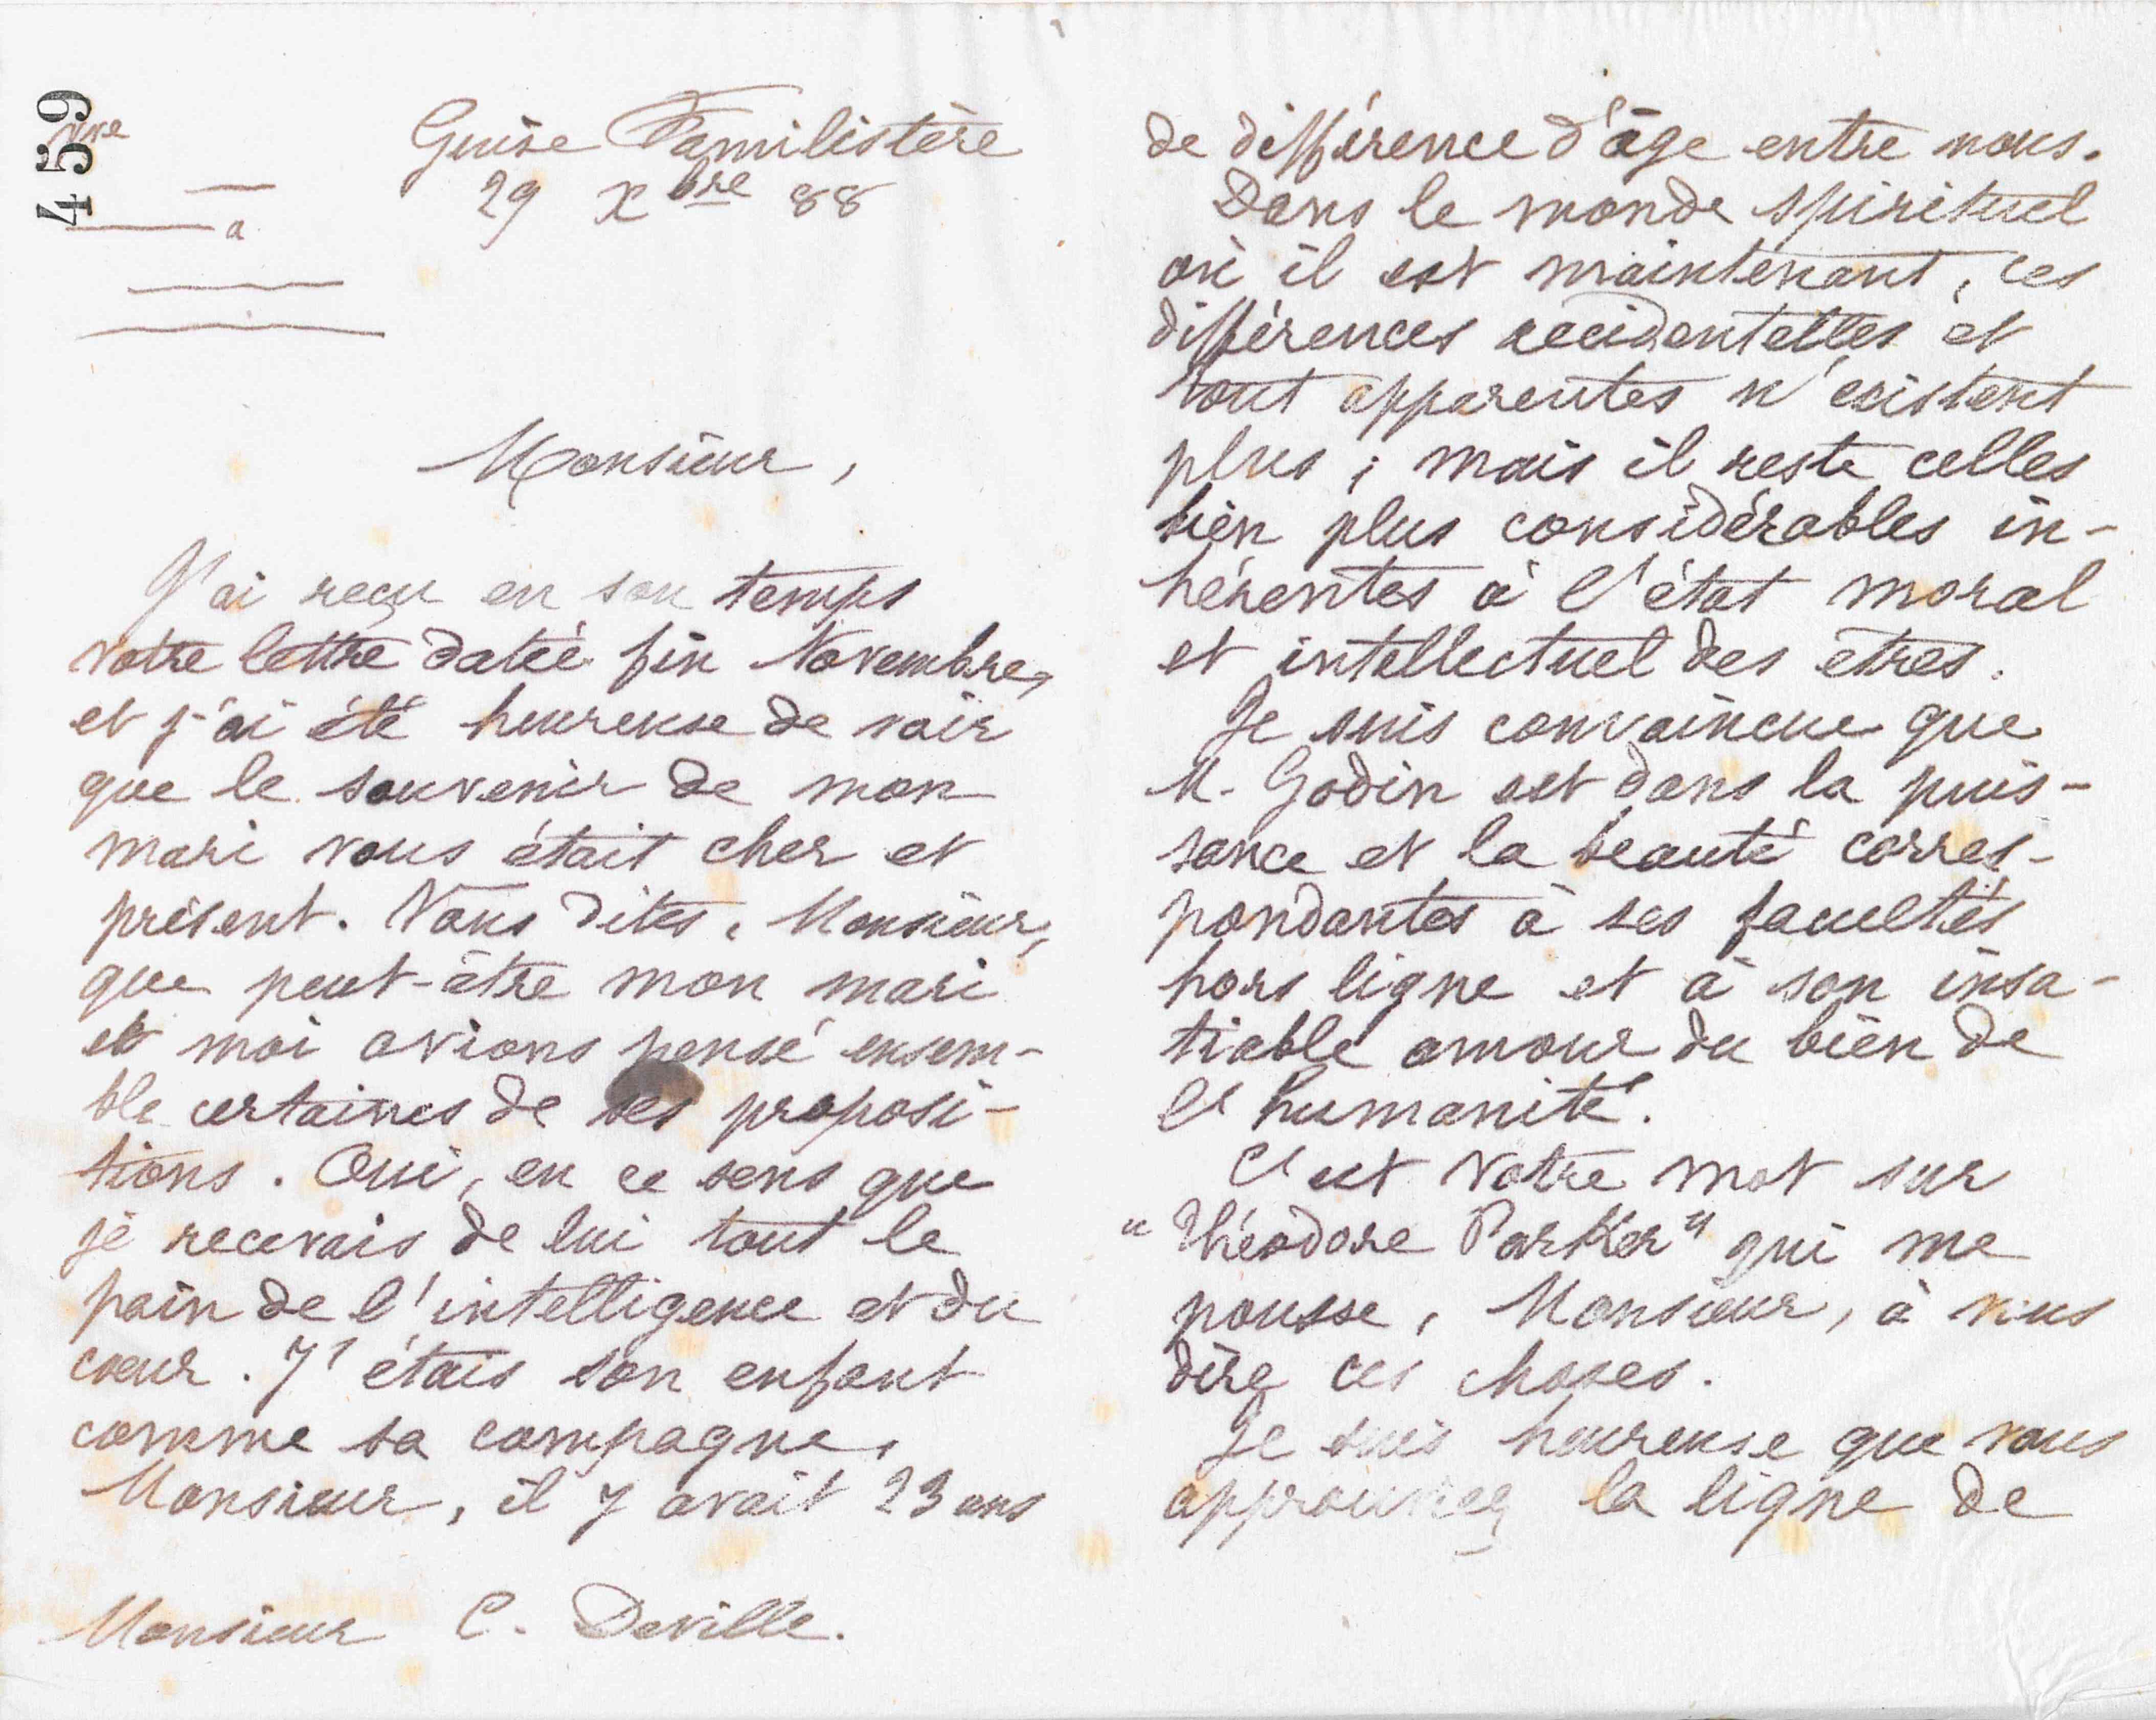 459
vve
a
Guise Familistère
29 Xbre 88
Monsieur,
J'ai reçu en son temps
votre lettre datée fin Novembre,
et j'ai été heureuse de voir
que le souvenir de mon
mari vous était cher et
présent. Vous dites, Monsieur,
que peut-être mon mari
et moi avions pensé ensem-
ble certaines de ses proposi-
tions. Oui, en ce sens que
je recevais de lui tout le
pain de l'intelligence et du
cœur. J'étais son enfant
comme sa compagne,
Monsieur, il y avait 23 ans
Monsieur C. Deville.
de différence d'âge entre nous.
Dans le monde spirituel
où il est maintenant, ces
différences accidentelles et
tout apparentes n'existent
plus ; mais il reste celles
bien plus considérables in-
hérentes à l'état moral
et intellectuel des êtres.
Je suis convaincue que
M. Godin est dans la puis-
sance et la beauté corres-
pondantes à ses facultés
hors ligne et à son insa-
tiable amour du bien de
l'humanité.
C'est votre mot sur
"Théodore Parker" qui me
pousse, Monsieur, à vous
dire ces choses.
Je suis heureuse que vous
approuviez la ligne de